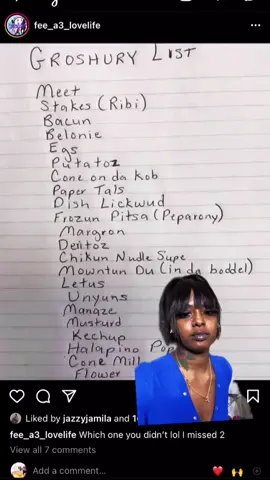 fee_a3_lovelife
GROSHURY LIST
Meet
Stakes (Ribi)
Bacun
Belonie
Egs
Putatoz
Cone on da kob
Paper Tals
Dish Lickwud
Frozun Pitsa (Peparony)
Margron
Dentoz
Chikun Nudle Supe
Mowntun Du (in da boddel)
Letus
Unyuns
Manaze
Musturd
Kechup
Halapino Pop
Cone Mill
Flower
Liked by jazzyjamila and
fee_a3_lovelife Which one you didn't lol I missed 2
View all 7 comments
Add a comment...